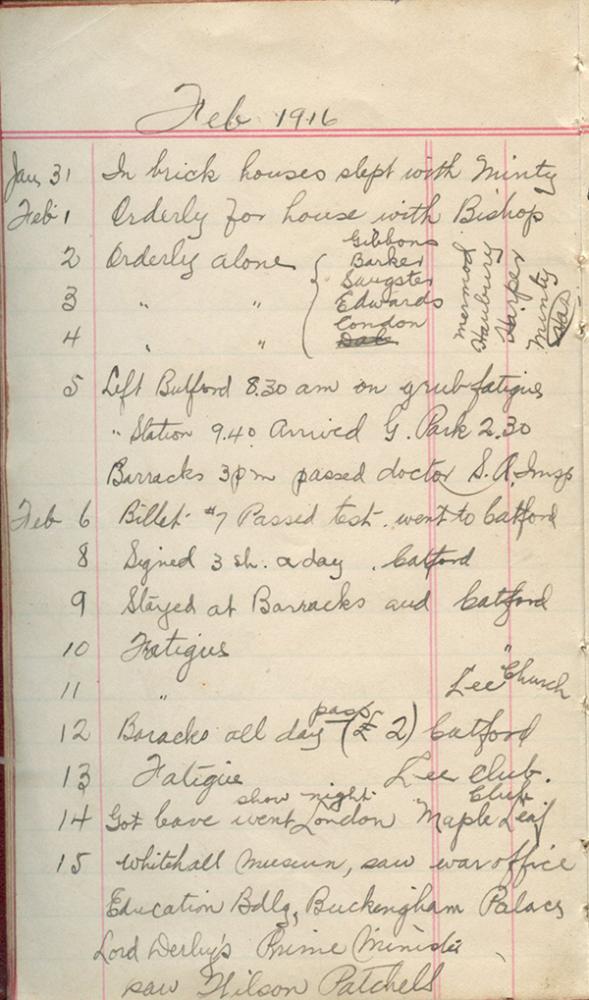 Feb 1916
Jan 31 In brick houses slept with Minty
Feb 1 Orderly for house with Bishop
2 Orderly alone
3 " "
4 " "
Gibbons
Barker
Sangster
Edwards
London
Dale
Mermod
Hanbury
Harper
Minty
5 Left Bulford 8.30 am on grub fatigue
" Station 9.40 Arrived G. Park 2.30
Barracks 3 pm passed doctor S.A. Insp
Feb 6 Billet #7 Passed test. went to Catford
8 Signed 3 sh. a day . Catford
9 Stayed at Barracks and Catford
10 Fatigue "
11 " Lee Church
12 Baracks all day pass (£ 2) Catford
13 Fatigue Lee Club.
14 Got leave went London show night. Maple Leaf Club
15 Whitehall Museum, saw war office
Education Bdlg, Buckingham Palace
Lord Derby's Prime Minister
saw Wilson Patchell